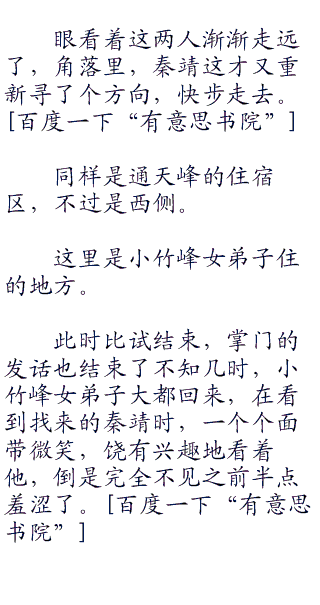 眼看着这两人渐渐走远
了，角落里，秦靖这才又重
新寻了个方向，快步走去。
[百度一下“有意思书院”]
同样是通天峰的住宿
区，不过是西侧。
这里是小竹峰女弟子住
的地方。
此时比试结束，掌门的
发话也结束了不知几时，小
竹峰女弟子大都回来，在看
到找来的秦靖时，一个个面
带微笑，饶有兴趣地看着
他，倒是完全不见之前半点
羞涩了。[百度一下“有意思
书院”]